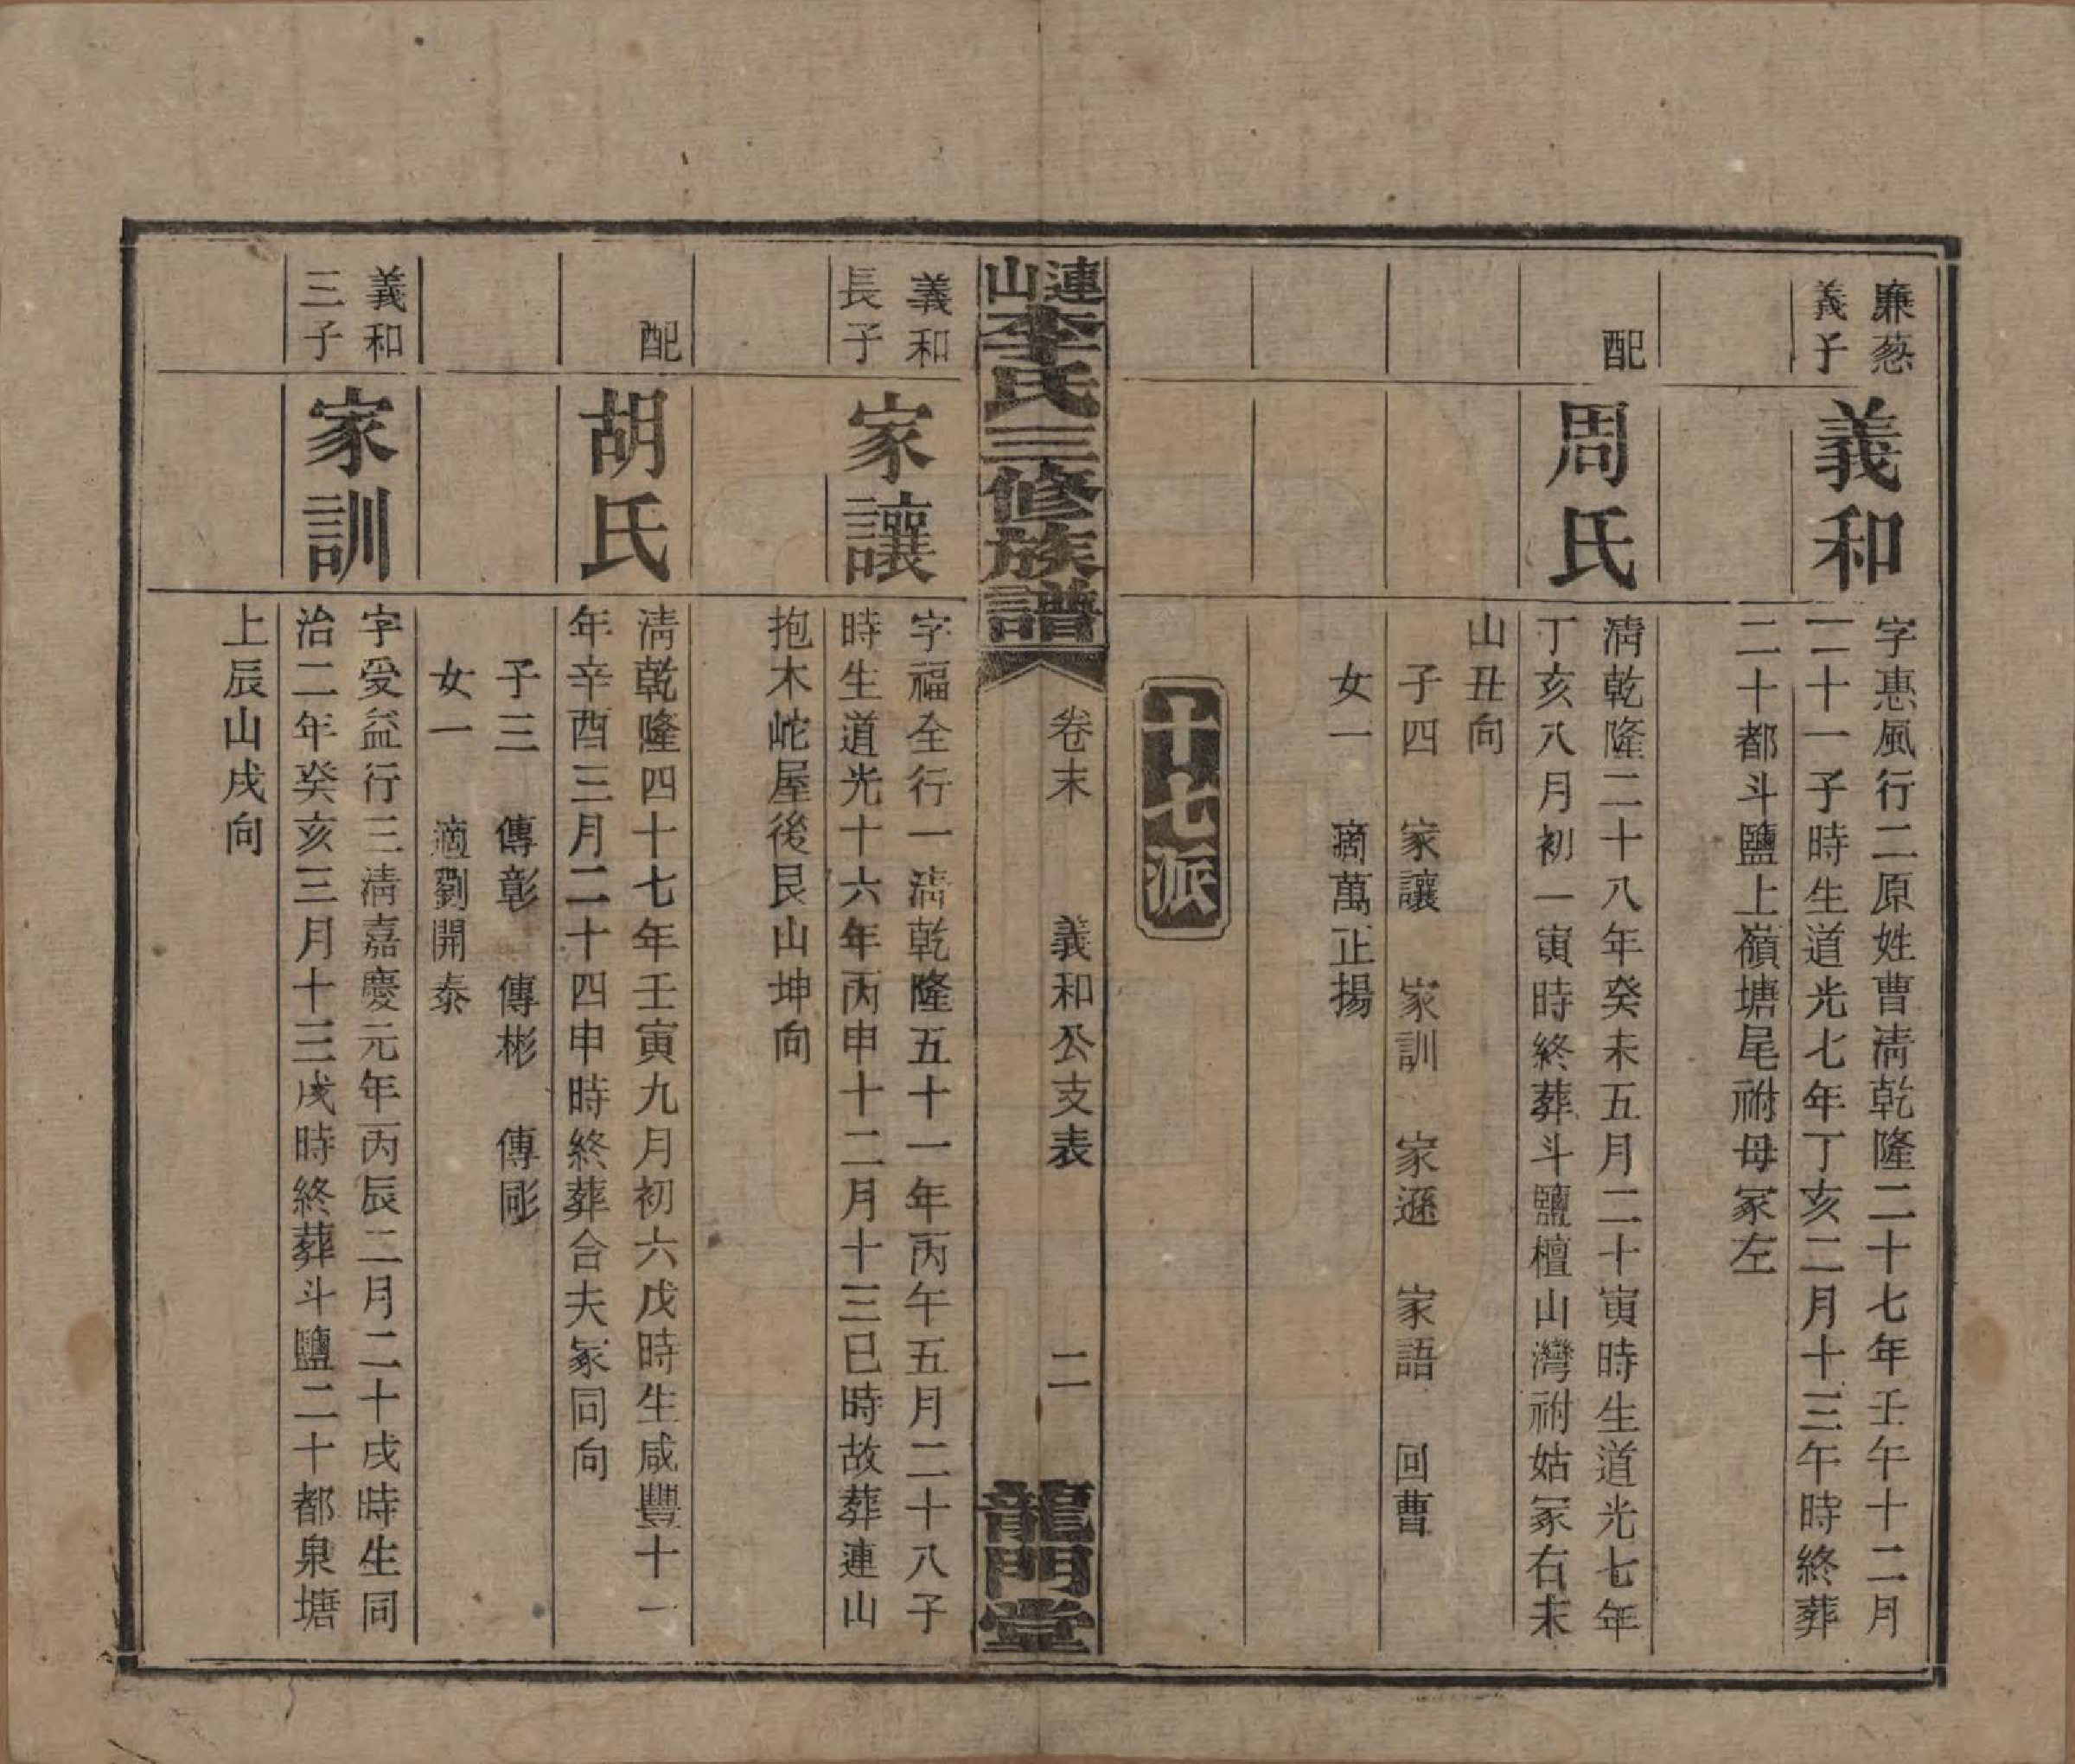 廉慈
義子
義和
字惠風行二原姓曹清乾隆二十七年壬午十二月
二十一子時生道光七年丁亥二月十三午時終葬
二十都斗鹽上嶺塘尾祔母冢左
配
周氏
清乾隆二十八年癸未五月二十寅時生道光七年
丁亥八月初一寅時終葬斗鹽檀山灣祔姑冢右未
山丑向
子四 家讓 家訓 家遜 家語 回曹
女一 適萬正揚
十七派
連山李氏三修族譜
卷末 義和公支表 二
龍門堂
義和
長子
家讓
字福全行一清乾隆五十一年丙午五月二十八子
時生道光十六年丙申十二月十三巳時故葬連山
抱木岮屋後艮山坤向
配
胡氏
清乾隆四十七年壬寅九月初六戊時生咸豐十一
年辛酉三月二十四申時終葬合夫冢同向
子三 傳彰 傳彬 傳彫
女一 適劉開泰
義和
三子
家訓
字受益行三清嘉慶元年丙辰二月二十戌時生同
治二年癸亥三月十三戌時終葬斗鹽二十都泉塘
上辰山戌向